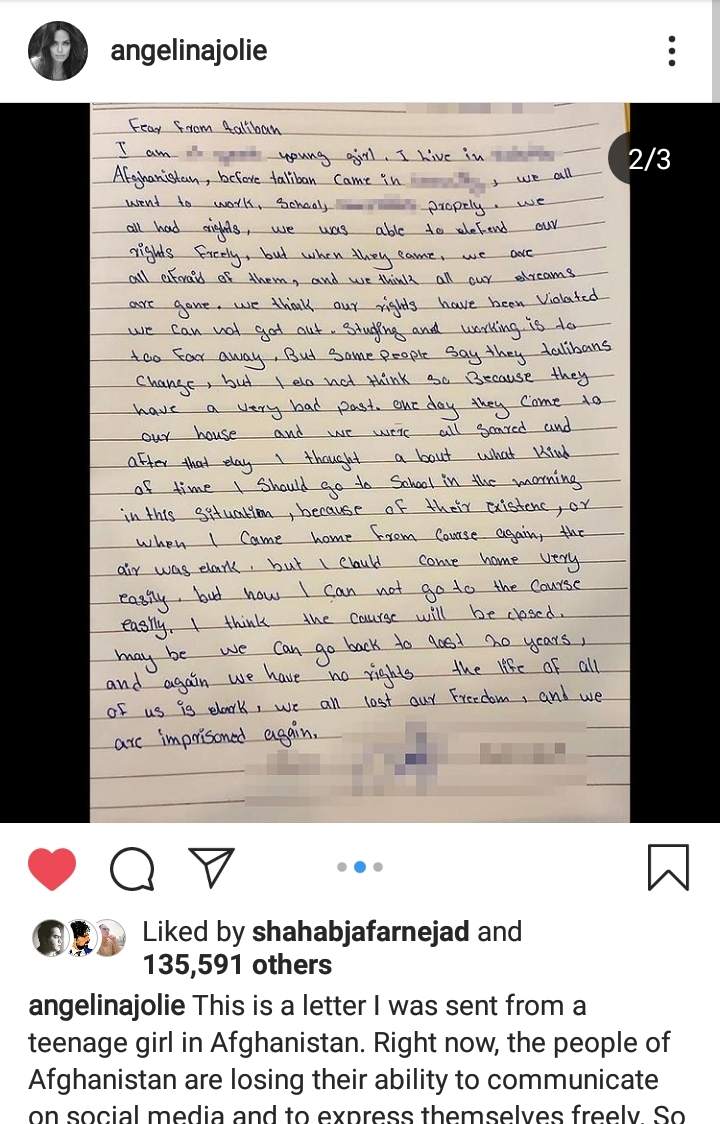 angelinajolie
2/3
Fear from taliban
I am young girl. I live in
Afghanistan, before taliban came in , we all
went to work, School, propely. we
all had rights, we was able to defend our
rights freely, but when they came, we are
all afraid of them, and we think all our dreams
are gone. we think our rights have been Violated
we can not got out. Studing and working is to
too Far away. But Some People Say they talibans
Change, but I do not think so Because they
have a very bad past. one day they Come to
our house and we were all Scared and
after that day I thought a bout what Kind
of time I Should go to School in the morning
in this situation, because of their existenc, or
when I Came home from Course again, the
air was dark. but I Could come home very
easily. but now I Can not go to the Course
easily. I think the Course will be closed.
may be we Can go back to last 20 years,
and again we have no rights the life of all
of us is dark, we all lost our Freedom, and we
are imprisoned again.
Liked by shahabjafarnejad and
135,591 others
angelinajolie This is a letter I was sent from a
teenage girl in Afghanistan. Right now, the people of
Afghanistan are losing their ability to communicate
on social media and to express themselves freely. So